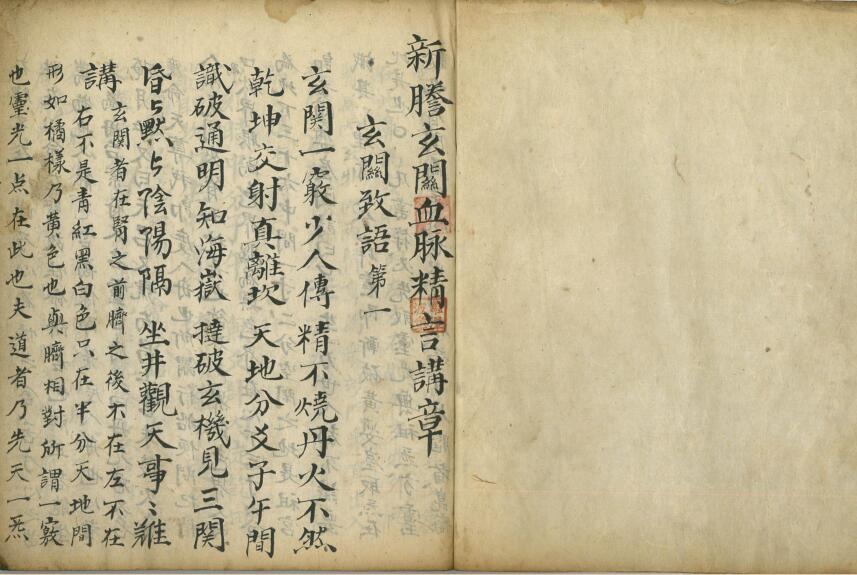 新謄玄關血脉精言講章
玄關致語 第一
玄関一竅少人傳 精不燒丹火不然
乾坤交射真離坎 天地分爻子午間
識破通明知海嶽 撻破玄機見三関
昏〻黙〻陰陽隔 坐井觀天事〻難
講 玄関者在腎之前臍之後不在左不在
右不是青紅黑白色只在半分天地間
形如橘樣乃黄色也與臍相對所謂一竅
也靈光一点在此也夫道者乃先天一炁